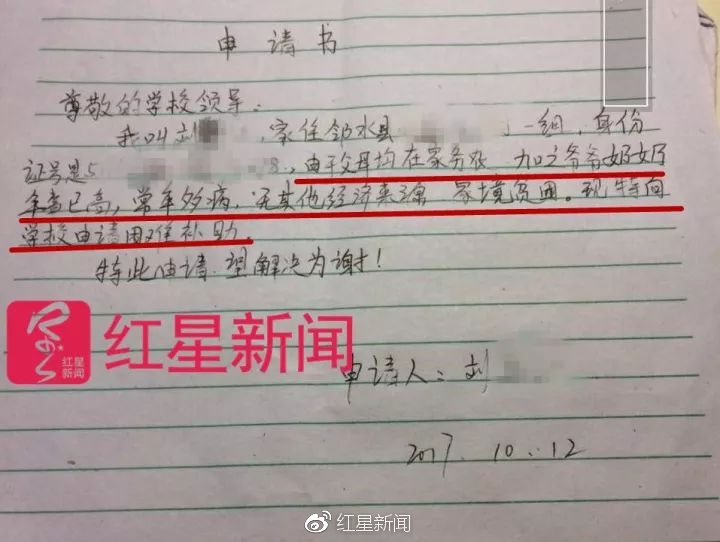 申请书
尊敬的学校领导:
我叫刘 ,家住邻水县 一组,身份
证号是5 8,由于父母均在家务农 加之爷爷奶奶
年岁已高,常年多病,无其他经济来源 家境贫困。现特向
学校申请困难补助。
特此申请,望解决为谢!
红星新闻
红星新闻
申请人:刘
2017.10.12
红星新闻